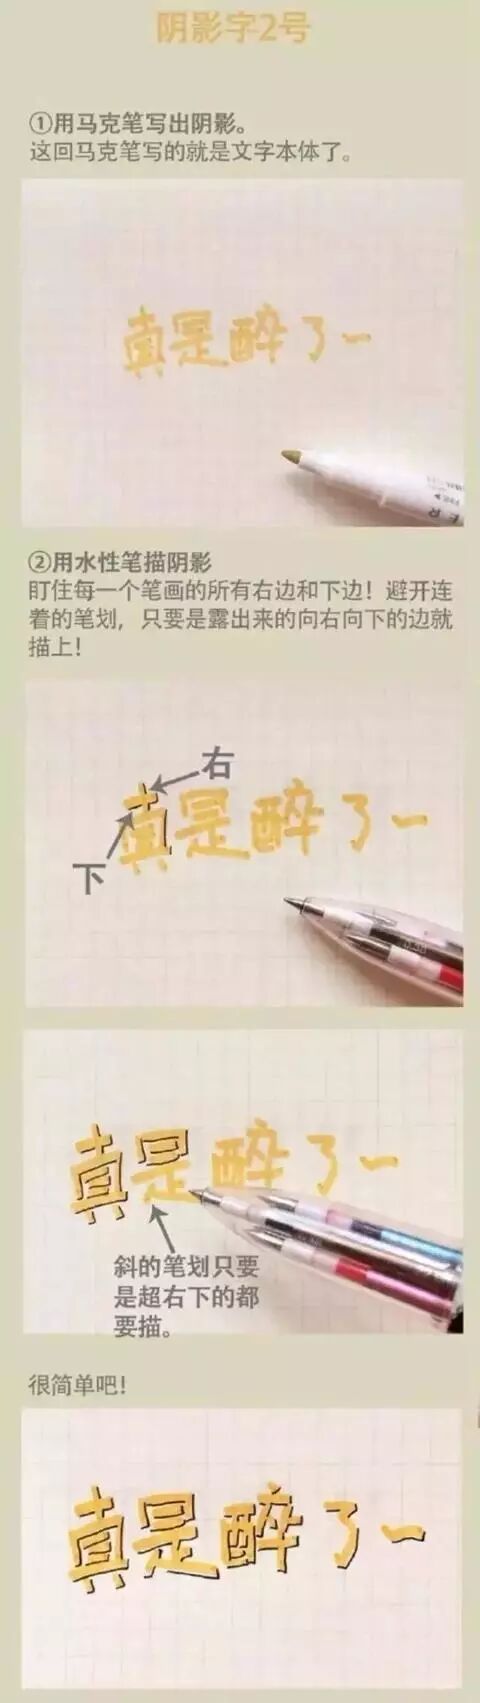 阴影字2号
①用马克笔写出阴影。
这回马克笔写的就是文字本体了。
真是醉了一
②用水性笔描阴影
盯住每一个笔画的所有右边和下边！避开连
着的笔划，只要是露出来的向右向下的边就
描上！
右
真是醉了一
下
0.38
真是醉了一
斜的笔划只要
是超右下的都
要描。
很简单吧！
真是醉了一